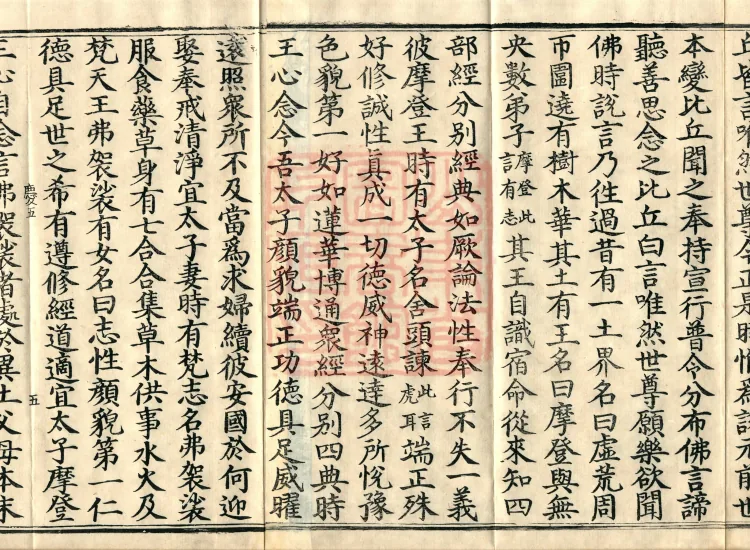 丘皆言唯然世尊今正是時惟為說元前世
本變比丘聞之奉持宣行普令分布佛言諦
聽善思念之比丘白言唯然世尊願樂欲聞
佛時說言乃往過昔有一土界名曰虛荒周
帀圍遶有樹木華其土有王名曰摩登與無
央數弟子摩登此言有志其王自識宿命從來知四
部經分別經典如厥論法性奉行不失一義
彼摩登王時有太子名舍頭諫此言虎耳端正殊
好修誠性真成一切德威神遠達多所悅豫
色貌第一好如蓮華博通衆經分別四典時
王心念今吾太子顏貌端正功德具足威曜
遠照衆所不及當爲求婦續彼安國於何迎
娶奉戒清淨宜太子妻時有梵志名弗袈裟
服食藥草身有七合合集草木供事水火及
梵天王弗袈裟有女名曰志性顏貌第一仁
德具足世之希有遵修經道適宜太子摩登
慶五 五
王心自念言弗袈裟者處於異土父母本末